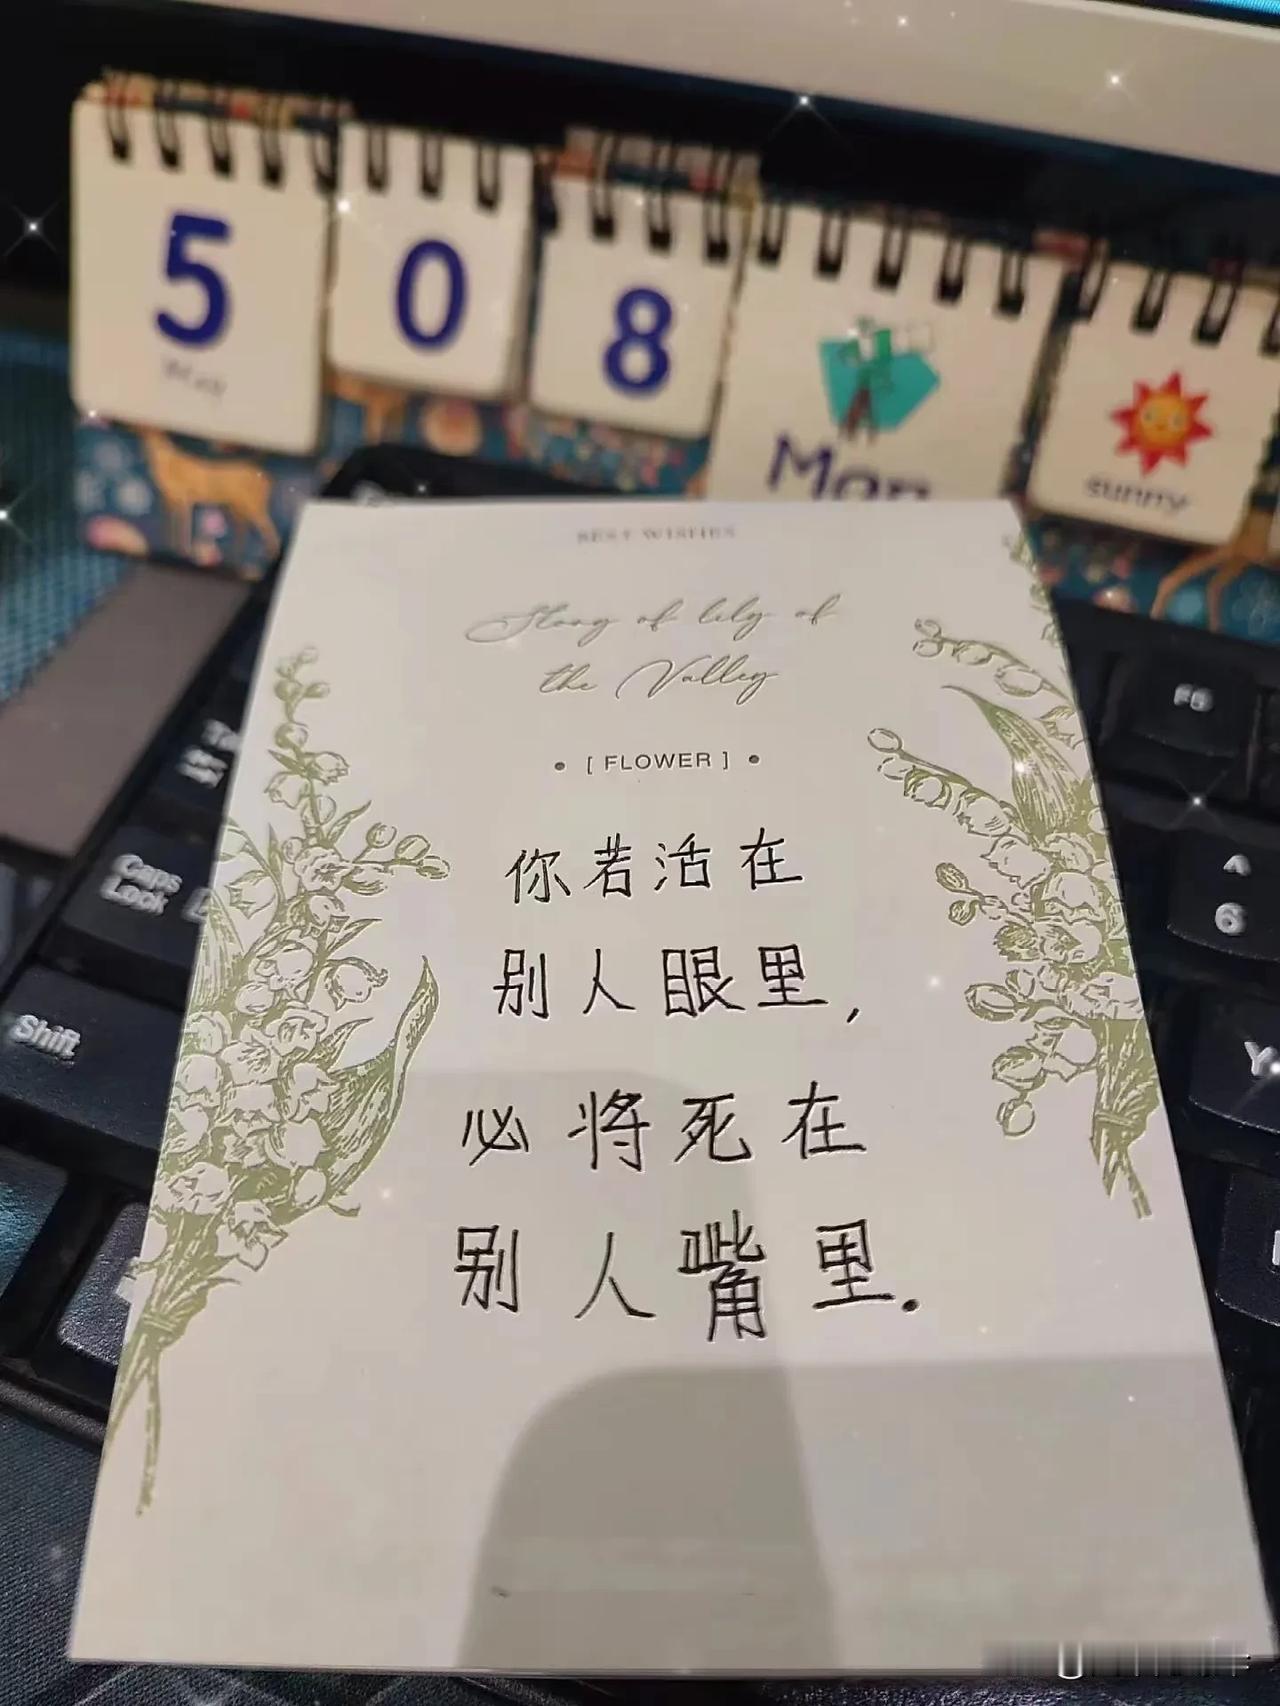 5
May
0
8
Mon
sunny
BEST WISHES
Story of lily of
the Valley
• [ FLOWER ] •
你若活在
别人眼里,
必将死在
别人嘴里.
Caps
Lock
Shift
F6
^
6
Y